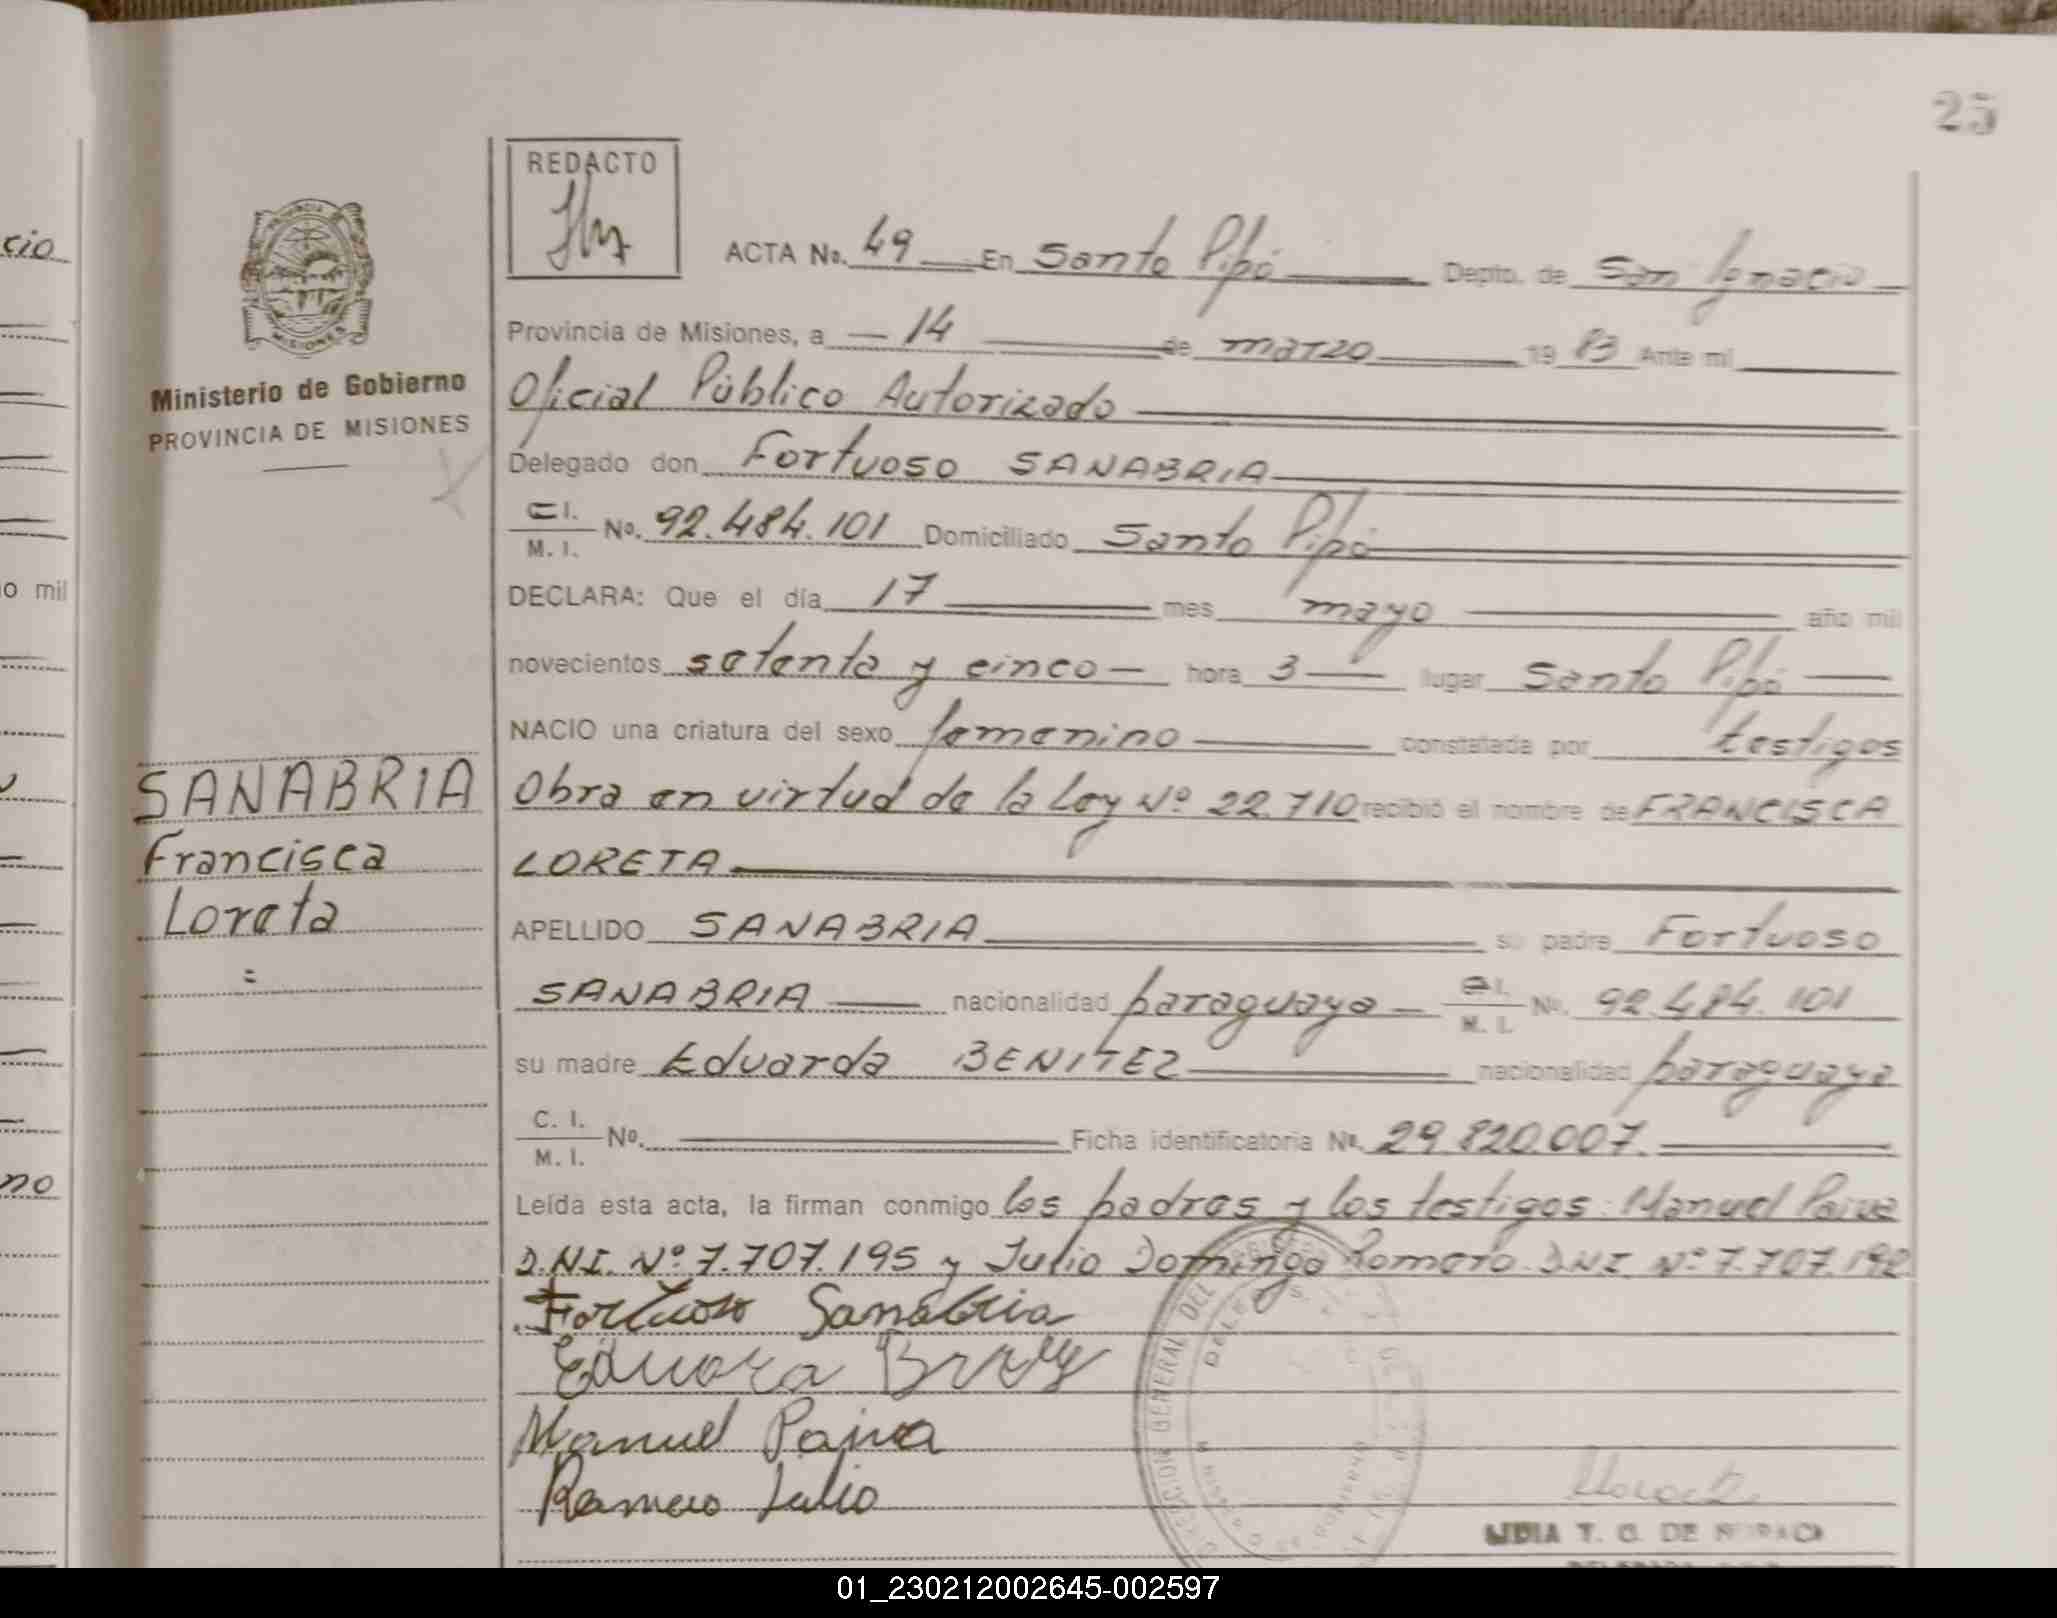 25
REDACTO
PROVINCIA
MISIONES
Ministerio de Gobierno
PROVINCIA DE MISIONES
ACTA No. 49 En Santo Pipó Depto. de San Ignacio
Provincia de Misiones, a 14 de marzo 19 83 Ante mi
Oficial Público Autorizado
Delegado don Fortuoso SANABRIA
C.I. M. I. No. 92.484.101 Domiciliado Santo Pipó
DECLARA: Que el día 17 mes mayo año mil
novecientos setenta y cinco hora 3 lugar Santo Pipó
NACIO una criatura del sexo femenino constatada por testigos
Obra en virtud de la Ley Nº 22.710 recibió el nombre de FRANCISCA
LORETA
APELLIDO SANABRIA su padre Fortuoso
SANABRIA nacionalidad paraguaya C.I. M. I. No. 92.484.101
su madre Eduarda BENITEZ nacionalidad paraguaya
C. I. M. I. No. Ficha identificatoria No. 29.820.007.
Leída esta acta, la firman conmigo los padres y los testigos: Manuel Paiva
D.N.I. Nº 7.707.195 y Julio Domingo Romero D.N.I. Nº 7.707.192
Fortuoso Sanabria
Manuel Paiva
Romero Julio
SANABRIA
Francisca
Loreta
cio
o mil
no
DIRECCION GENERAL DEL
LIDIA T. C. DE
01_230212002645-002597